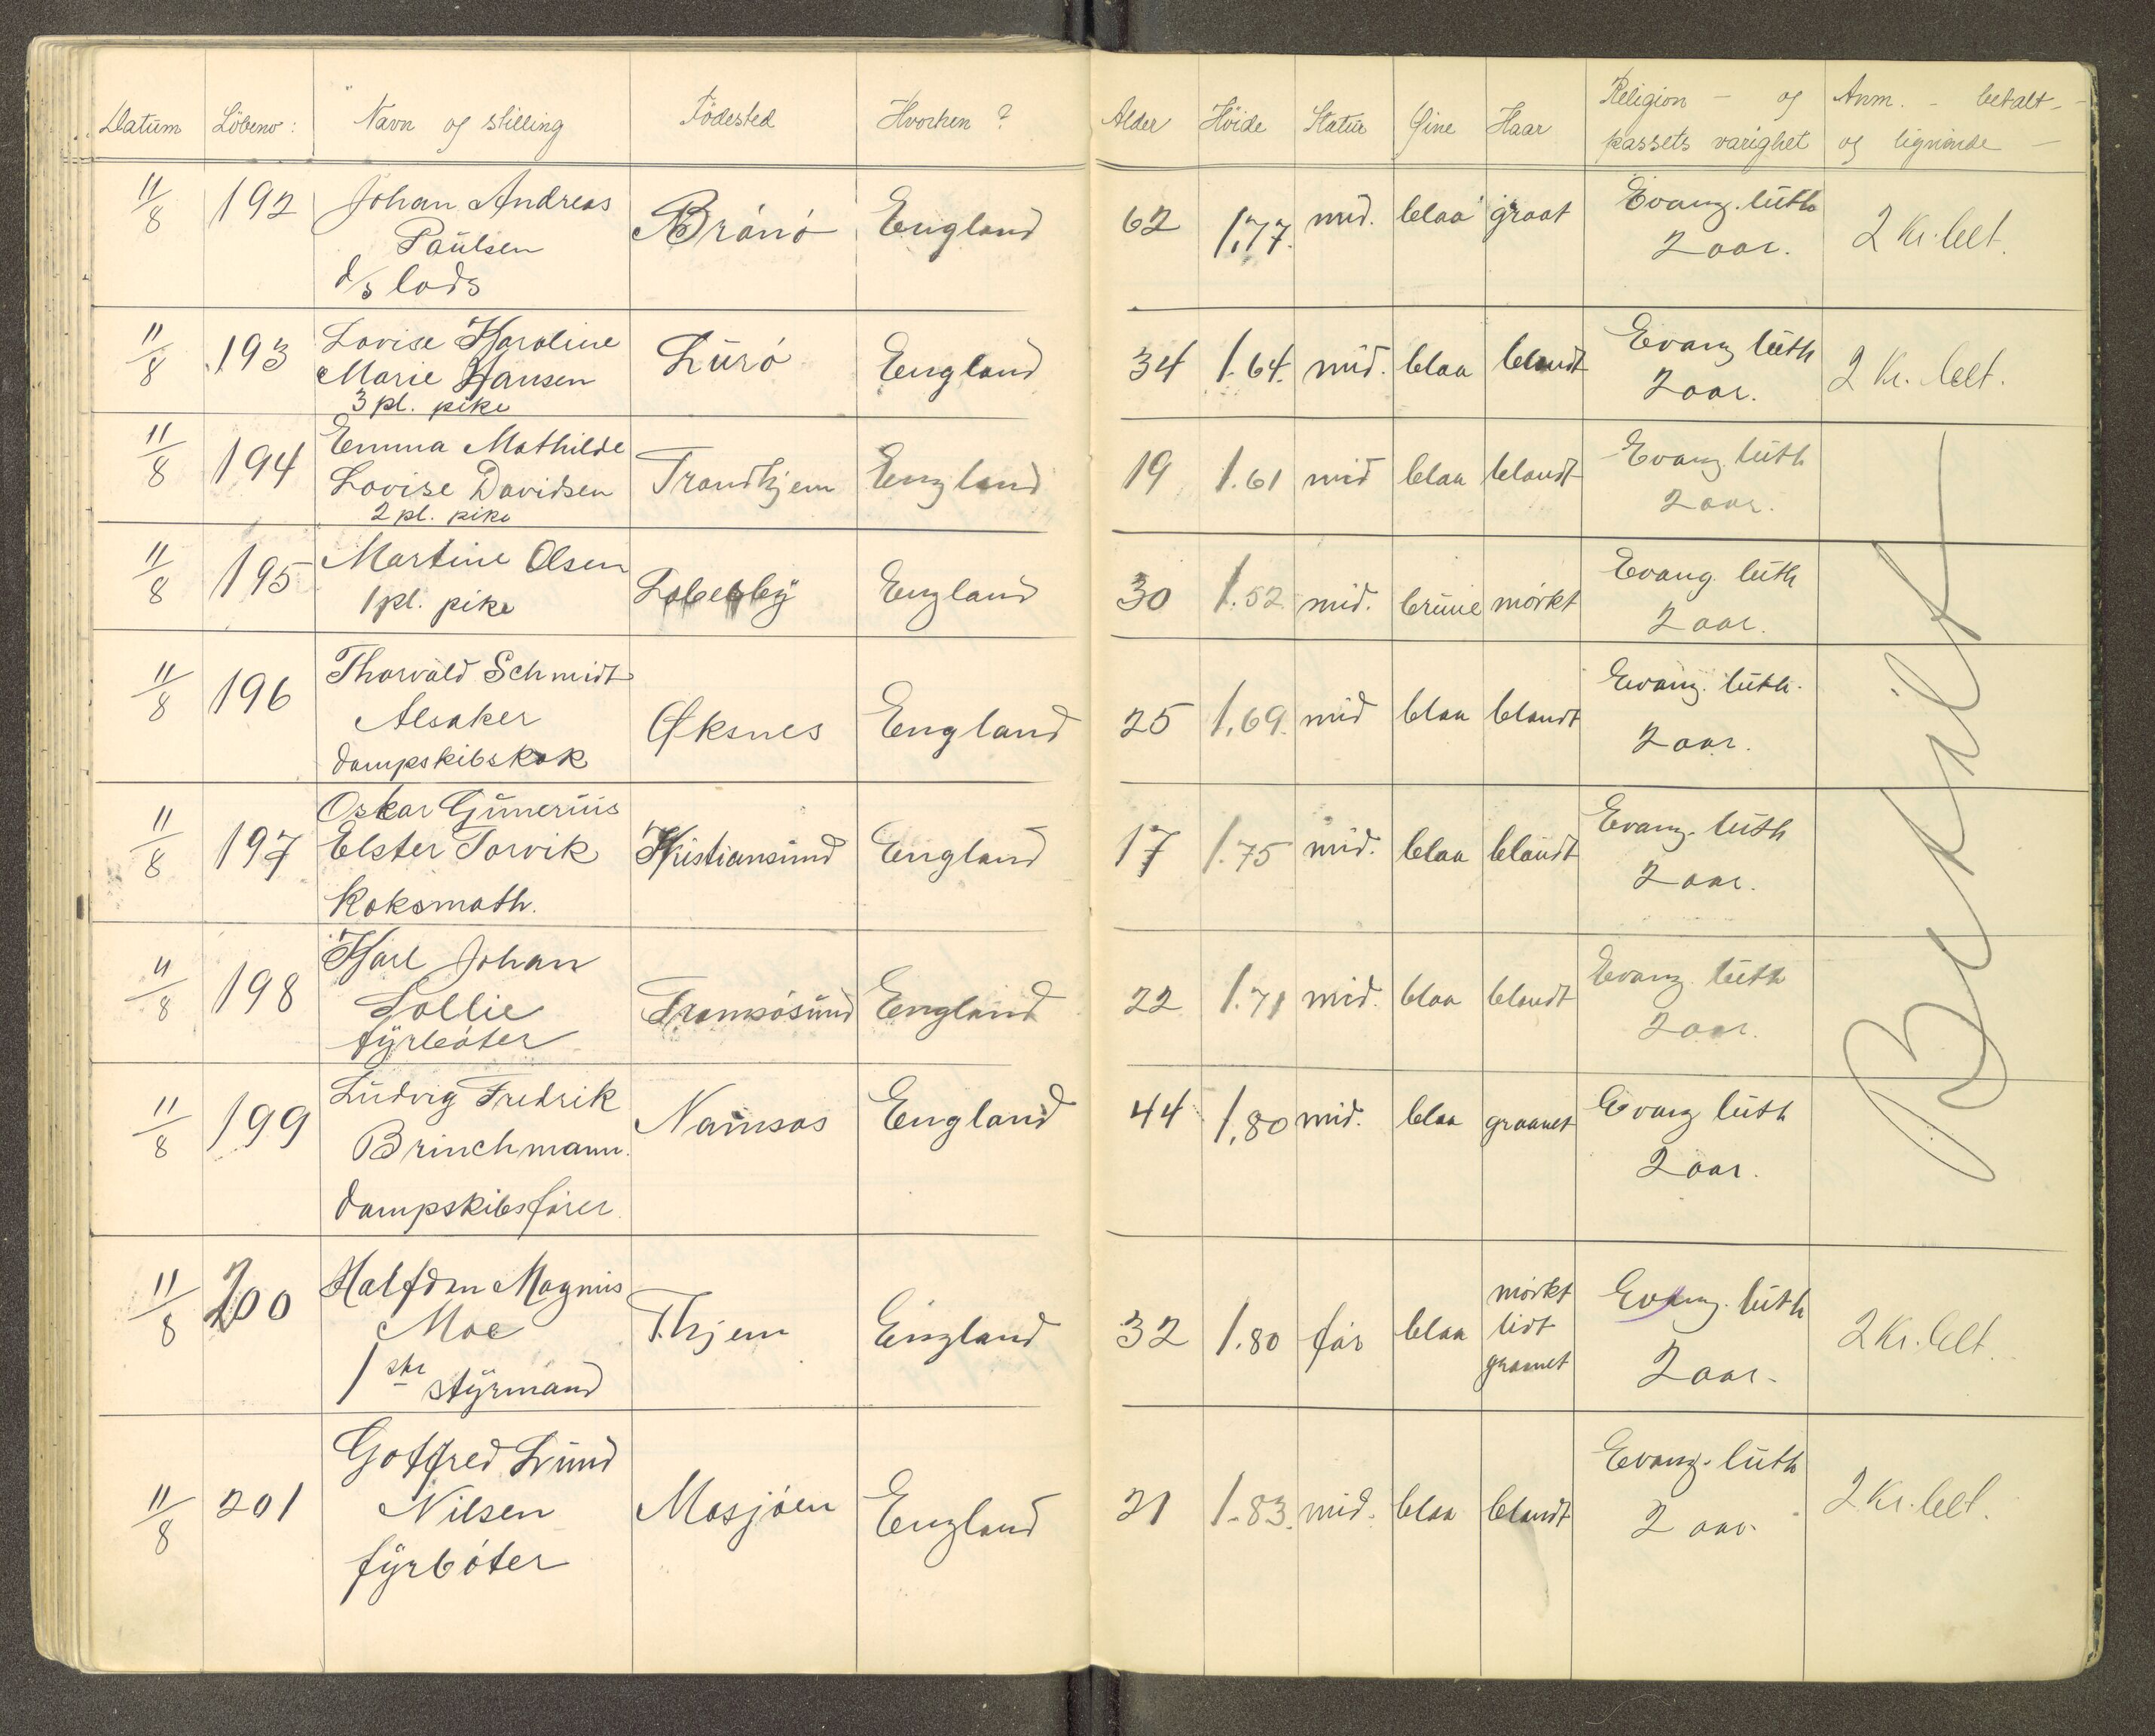 Datum Löbeno: Navn og stilling Födested Hvorhen? Alder Höide Statur Øine Haar Religion - og passets varighet Anm. - betalt - og lignende -
11/8 192 Johan Andreas Brönö England 62 1,77. mid. blaa graat Evang. luth 2 Kr. bet.
Paulsen 2 aar.
d/s lods
11/8 193 Lovise Karoline Lurö England 34 1.64. mid. blaa blondt Evang luth 2 Kr. bet.
Marie Hansen 2 aar.
3 pl. pike
11/8 194 Emma Mathilde Trondhjem England 19 1.61 mid blaa blondt Evang. luth
Lovise Davidsen 2 aar.
2 pl. pike
11/8 195 Martine Olsen Lebesby England 30 1.52 mid. brune mörkt Evang. luth
1 pl. pike 2 aar.
11/8 196 Thorvald Schmidt Øksnes England 25 1.69. mid blaa blondt Evang. luth.
Alsaker 2 aar.
dampskibskok
11/8 197 Oskar Gunerius Kristiansund England 17 1.75 mid. blaa blondt Evang. luth
Elster Torvik 2 aar.
Koksmath.
11/8 198 Karl Johan Tromsösund England 22 1.71 mid. blaa blondt Evang. luth
Lollie 2 aar.
fyrböter
11/8 199 Ludvig Fredrik Namsos England 44 1,80 mid. blaa graanet Evang luth
Brinchmann. 2 aar.
dampskibsförer.
Betalt
11/8 200 Halfdan Magnus Thjem England 32 1.80 för blaa mörkt lidt graanet Evang. luth 2 Kr. bet.
Moe 2 aar.
1ste styrmand
11/8 201 Gotfred Lund Mosjöen England 21 1.83. mid. blaa blondt Evang. luth 2 Kr. bet.
Nilsen 2 aar.
fyrböter